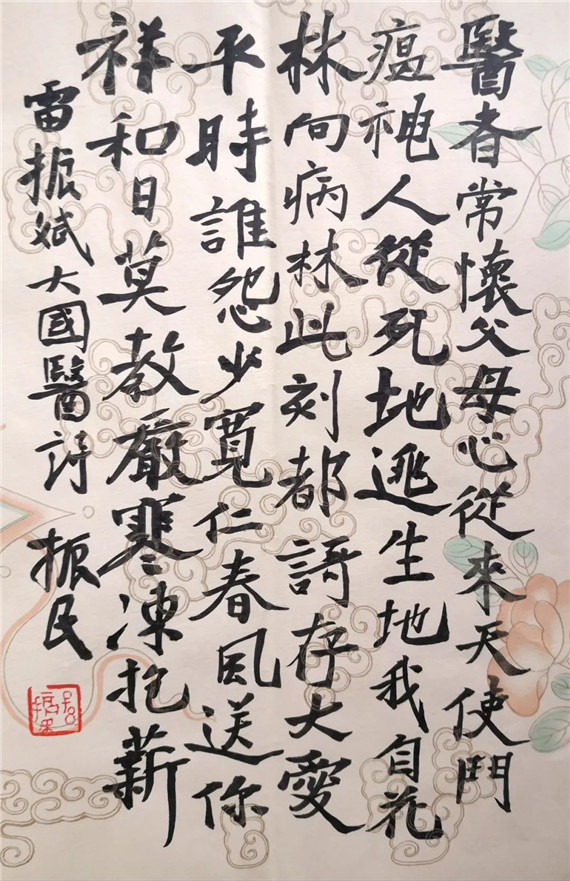 醫者常懷父母心從來天使鬥
瘟神人從死地逃生地我自花
林向病林此刻都誇存大愛
平時誰怨少寬仁春風送你
祥和日莫教嚴寒凍抱薪
雷振斌大國醫詩 振民